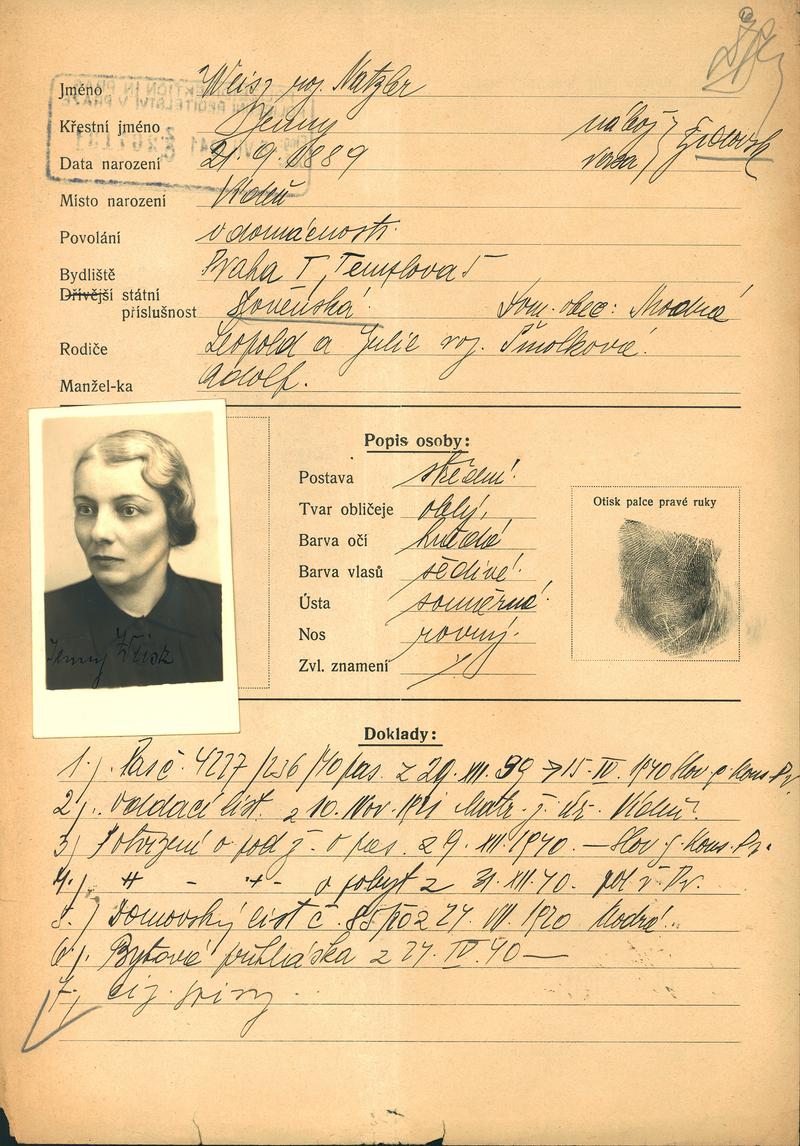 Jméno Weisz roz. Natzler
Křestní jméno Jenny nábož.
Data narození 21.9.1889 rasa } židovsk
Místo narození Vídeň
Povolání v domácnosti.
Bydliště Praha I, Templova 5
Dřívější státní
příslušnost slovenská. Dom. obec: Modra
Rodiče Leopold a Julie roz. Šmolková.
Manžel-ka Adolf.
Popis osoby:
Postava střední.
Tvar obličeje oblý,
Barva očí hnědé
Barva vlasů šedivé.
Ústa souměrná.
Nos rovný.
Zvl. znamení
Otisk palce pravé ruky
Jenny Weisz
Doklady:
1.). Pas č. 4227/236/40 pas. z 29. XII. 39 → 15. IV. 1940 Slov. g. Kons. Pr.
2). oddací list. z 10. Nov. 1921 Matr. ž. úř. Vídni.
3) Potvrzení o pod ž. o pas. z 9. XII. 1940. — Slov. g. Kons. Pr.
4.) o pobyt z 31. XII. 40. pol. ř. Pr.
5.) Domovský list č. z 27. VII. 1920 Modra..
6). Bytová přihláška z 27. IV. 40 —
7.)